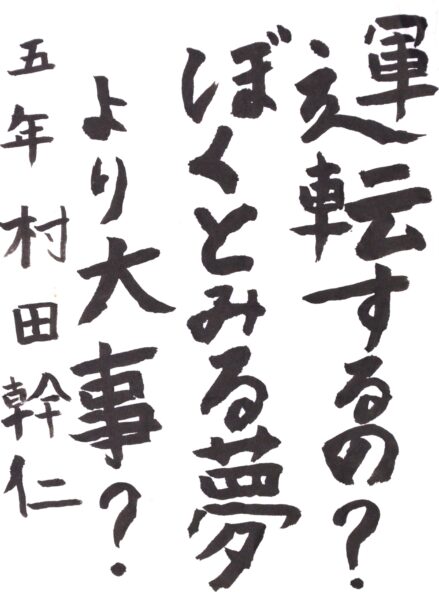 運転するの？
ぼくとみる夢
より大事？
五年 村田幹仁